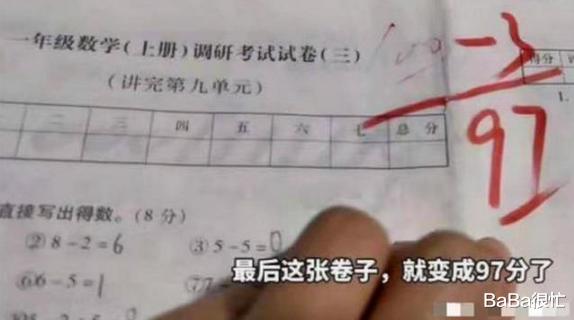 一年级数学(上册)调研考试试卷(三)
(讲完第九单元)
-3
97
得分
1.
二 三 四 五 六 七 总 分
直接写出得数。(8分)
②8-2=6 ③5-5=0
⑥6-5=1 ⑦7-
最后这张卷子，就变成97分了
BaBa很忙